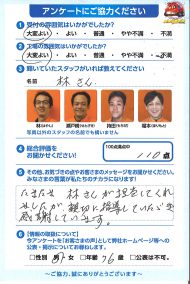 アンケートにご協力ください
1 受付の雰囲気はいかがでしたか?
大変よい ・ よい ・ 普通 ・ やや不満 ・ 不満
2 工場の雰囲気はいかがでしたか?
大変よい ・ よい ・ 普通 ・ やや不満 ・ 不満
3 輝いていたスタッフがいれば教えてください
名前 林さん
写真以外のスタッフの名前でも構いません
4 総合評価を
お聞かせください!
100点満点中
110点
5 その他、お気づきの点やお客さまのメッセージをお聞かせください。
みなさまの言葉が私たちのチカラになります!
たまたま 林さんが担当してくれ
ましたが 親切に指導していただき
感謝しています。
6 【情報の取扱について】
今アンケートを「お客さまの声」として弊社ホームページ等への
公表・掲示についてお尋ねします。
□性別 男・女 年齢 □公表は不可。
~ご協力、誠にありがとうございます~